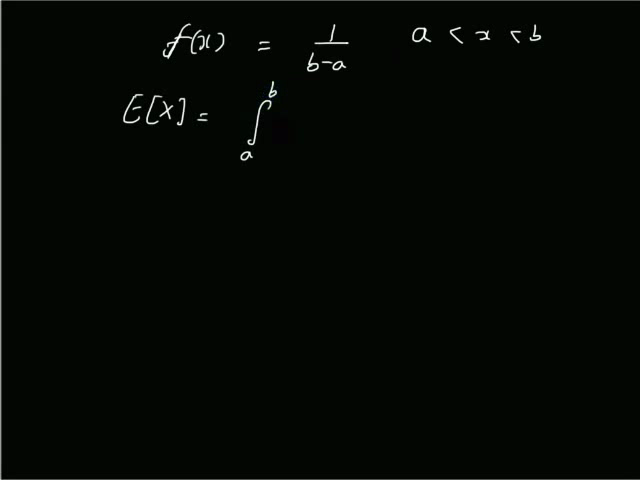 f(x) = 1/(b-a) a < x < b
E[X] = ∫_a^b